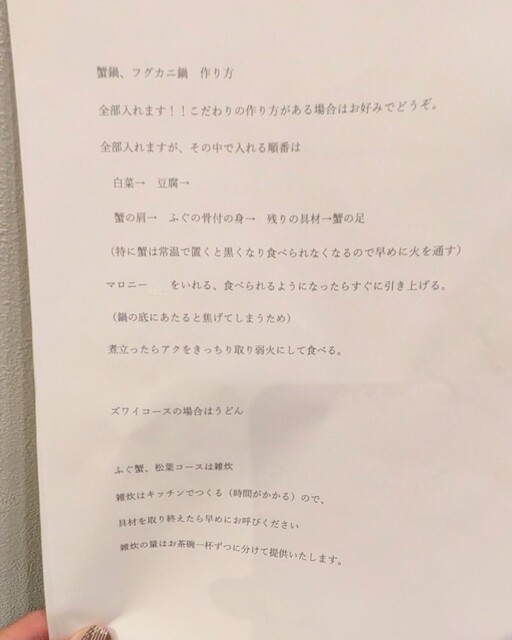 蟹鍋、フグカニ鍋　作り方
全部入れます！！こだわりの作り方がある場合はお好みでどうぞ。
全部入れますが、その中で入れる順番は
白菜→　豆腐→
蟹の肩→　ふぐの骨付の身→　残りの具材→蟹の足
（特に蟹は常温で置くと黒くなり食べられなくなるので早めに火を通す）
マロニー　　をいれる、食べられるようになったらすぐに引き上げる。
（鍋の底にあたると焦げてしまうため）
煮立ったらアクをきっちり取り弱火にして食べる。
ズワイコースの場合はうどん
ふぐ蟹、松葉コースは雑炊
雑炊はキッチンでつくる（時間がかかる）ので、
具材を取り終えたら早めにお呼びください
雑炊の量はお茶碗一杯ずつに分けて提供いたします。